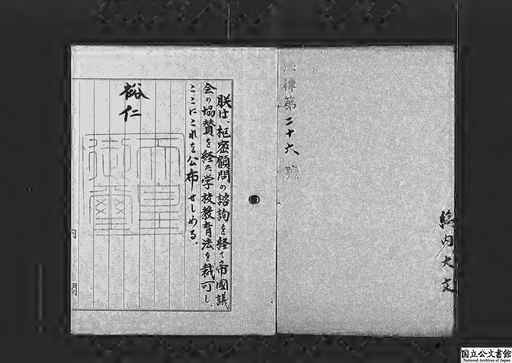 法律第二十六號
朕は、枢密顧問の諮詢を経て帝國議
会の協賛を経た学校教育法を裁可し、
ここにこれを公布せしめる。
裕仁
天皇
御璽
内
閣
国立公文書館
National Archives of Japan